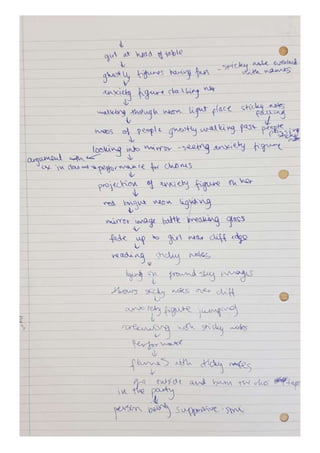 girl at head of table
ghostly figures having fun - sticky note covered with names
anxiety figure clashing
walking through neon light place sticky notes falling
mass of people ghostly walking past people
looking into mirror - seeing anxiety figure
argument with
performance for chorus
projection of anxiety figure on her
red bright neon lighting
mirror image battle breaking glass
fade up to girl near cliff edge
reading sticky notes
lying on ground sky images
throws sticky notes near cliff
anxiety figure jumping
screaming with sticky notes
Performance
flames with sticky notes
go outside and burn
in the party
person being supportive